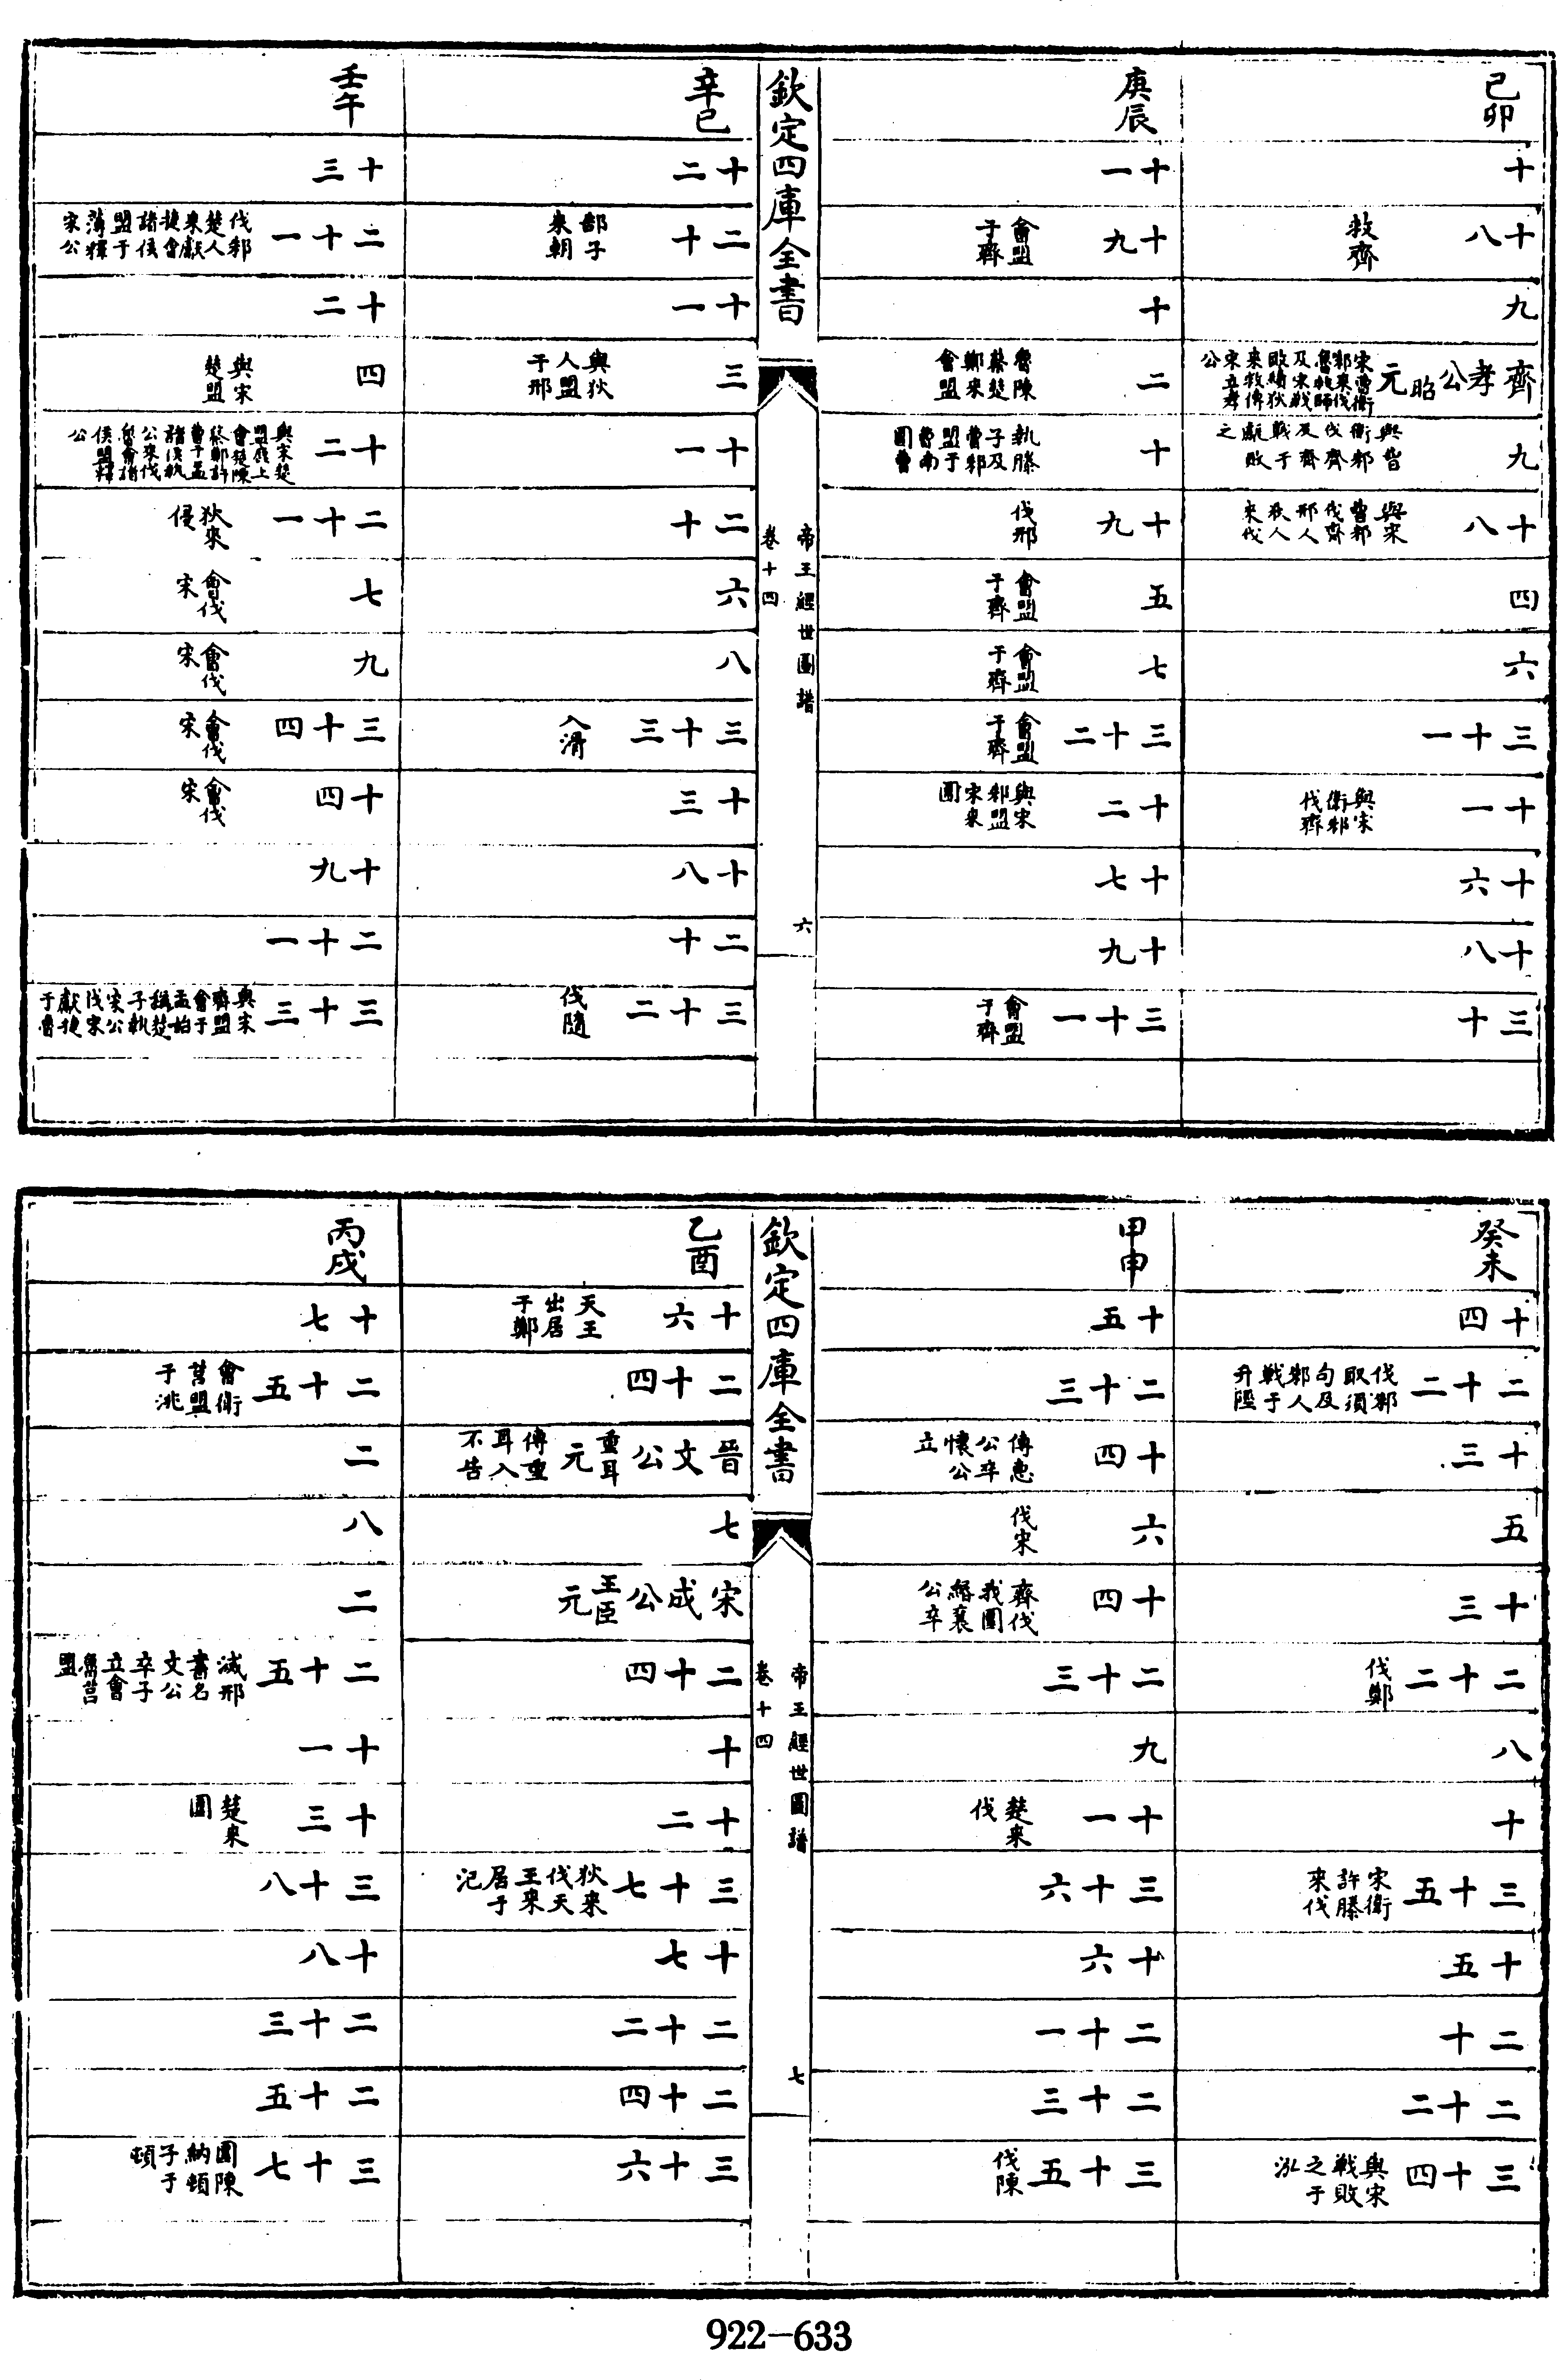 己卯
十
十八 救齊
九
齊孝公昭元 宋曹衛邾來伐魯救師及宋戰敗績狄來救傳宋立孝公
九 與曹衛邾伐齊及齊戰于甗敗之
十八 與宋曹邾伐齊邢人狄人來伐
四
六
三十一
十一 與宋衛邾伐齊
十六
十八
三十
庚辰
十一
十九 會盟于齊
十
二 魯陳蔡楚鄭來會盟
十 執滕子及曹邾盟于曹南圍曹
十九 伐邢
五 會盟于齊
七 會盟于齊
三十二 會盟于齊
十二 與宋邾盟宋來圍
十七
十九
三十一 會盟于齊
欽定四庫全書
帝王經世圖譜
卷十四
六
辛巳
十二
二十 郜子來朝
十一
三 與狄人盟于邢
十一
二十
六
八
三十三 入滑
十三
十八
二十
三十二 伐隨
壬午
十三
二十一 伐邾楚人來獻捷會諸侯盟于薄釋宋公
十二
四 與宋楚盟
十二 與宋楚盟鹿上會楚陳蔡鄭許曹于盂諸侯執公來伐魯會諸侯盟釋公
二十一 狄來侵
七 會伐宋
九 會伐宋
三十四 會伐宋
十四 會伐宋
十九
二十一
三十三 與宋齊盟會于盂始稱楚子執宋公伐宋獻捷于魯
癸未
十四
二十二 伐邾取須句及邾人戰于升陘
十三
五
十三
二十二 伐鄭
八
十
三十五 宋衛許滕來伐
十五
二十
二十二
三十四 與宋戰敗之于泓
甲申
十五
二十三
十四 傳惠公卒懷公立
六 伐宋
十四 齊伐我圍緡襄公卒
二十三
九
十一 楚來伐
三十六
十六
二十一
二十三
三十五 伐陳
欽定四庫全書
帝王經世圖譜
卷十四
七
乙酉
十六 天王出居于鄭
二十四
晉文公重耳元 傳重耳入不告
七
宋成公王臣元
二十四
十
十二
三十七 狄來伐天王來居于汜
十七
二十二
二十四
三十六
丙戌
十七
二十五 會衛莒盟于洮
二
八
二
二十五 滅邢書名文公卒子立會魯莒盟
十一
十三 楚來圍
三十八
十八
二十三
二十五
三十七 圍陳納頓子于頓
922-633